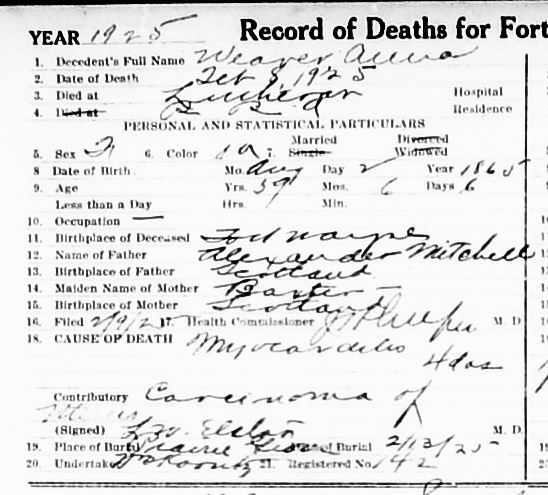 YEAR 1925 Record of Deaths for Fort
1. Decedent's Full Name Weaver Anna
2. Date of Death Feb 8, 1925
3. Died at Lutheran Hospital
4. Died at Residence
PERSONAL AND STATISTICAL PARTICULARS
Married Divorced
5. Sex F 6. Color 7. Single Widowed
8 Date of Birth Mo. Aug Day 2 Year 1865
9. Age Yrs. 59 Mos. 6 Days 6
Less than a Day Hrs. Min.
10. Occupation —
11. Birthplace of Deceased Fort Wayne
12. Name of Father Alexander Mitchell
13. Birthplace of Father Scotland
14. Maiden Name of Mother Baxter —
15. Birthplace of Mother Scotland
16. Filed 2/9/25 17. Health Commissioner M. D.
18. CAUSE OF DEATH Myocarditis
4 das
Contributory Carcinoma of
Uterus
(Signed) M. D.
19. Place of Burial Prairie Grove of Burial 2/13/25
20. Undertaker 21. Registered No. 142